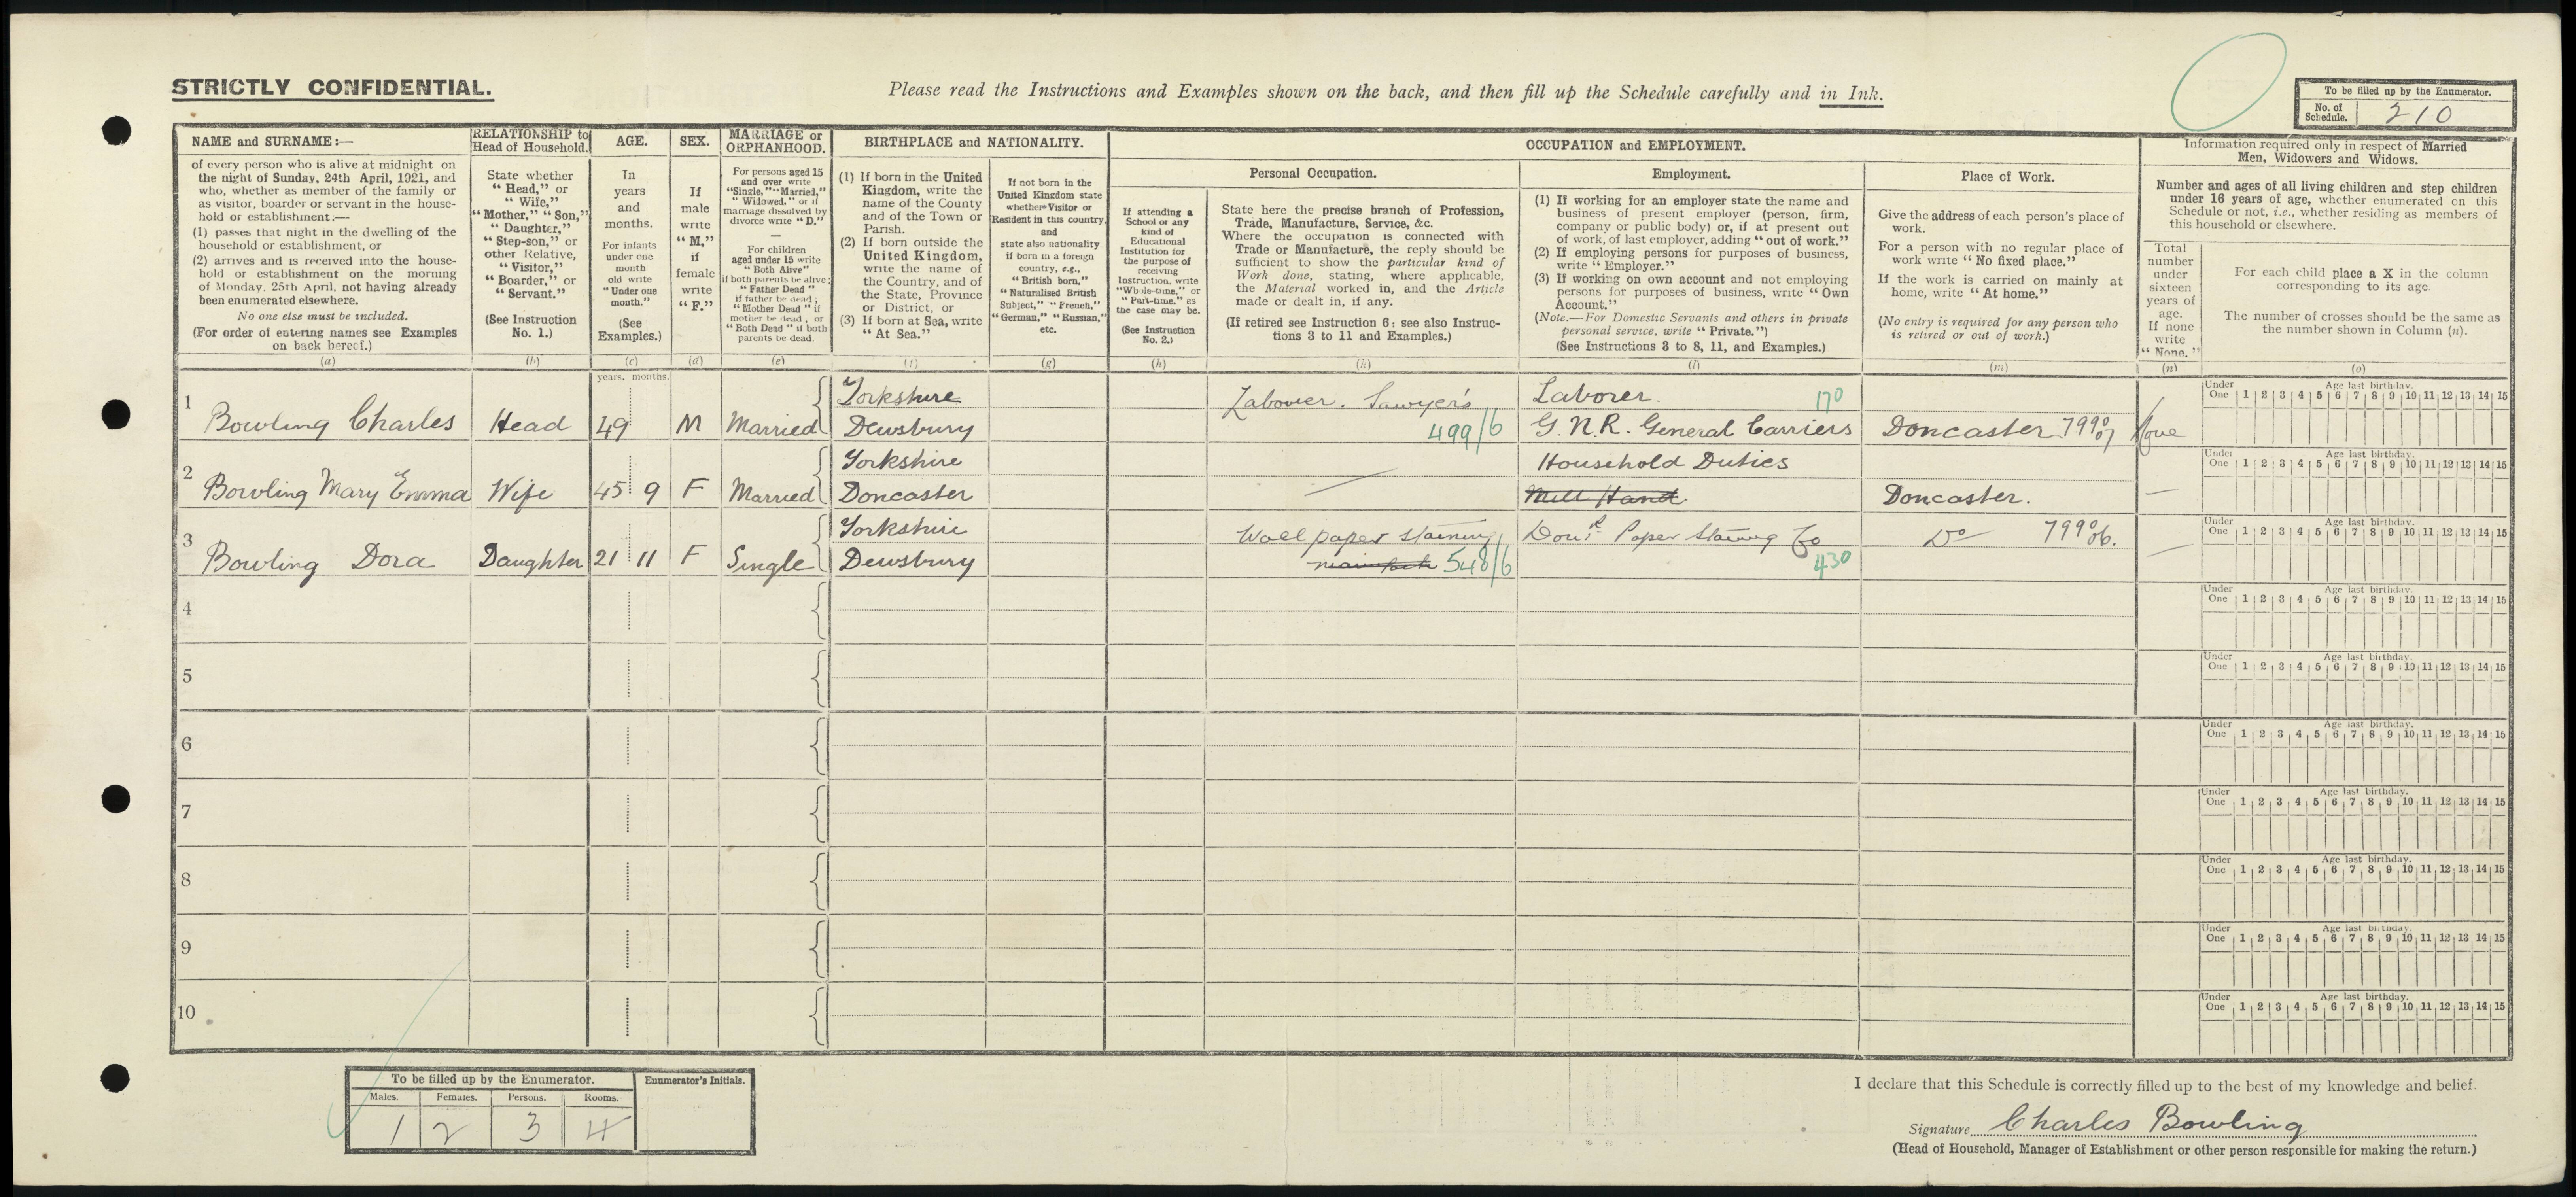 STRICTLY CONFIDENTIAL.
Please read the Instructions and Examples shown on the back, and then fill up the Schedule carefully and in Ink.
To be filled up by the Enumerator.
No. of Schedule. 210
NAME and SURNAME:—
of every person who is alive at midnight on
the night of Sunday, 24th April, 1921, and
who, whether as member of the family or
as visitor, boarder or servant in the house-
hold or establishment:—
(1) passes that night in the dwelling of the
household or establishment, or
(2) arrives and is received into the house-
hold or establishment on the morning
of Monday, 25th April, not having already
been enumerated elsewhere.
No one else must be included.
(For order of entering names see Examples
on back hereof.)
(a)
RELATIONSHIP to
Head of Household.
State whether
"Head," or
"Wife,"
"Mother," "Son,"
"Daughter,"
"Step-son," or
other Relative,
"Visitor,"
"Boarder," or
"Servant."
(See Instruction
No. 1.)
(b)
AGE.
In
years
and
months.
For infants
under one
month
old write
"Under one
month."
(See
Examples.)
(c)
SEX.
If
male
write
"M,"
if
female
write
"F."
(d)
MARRIAGE or
ORPHANHOOD.
For persons aged 15
and over write
"Single," "Married,"
"Widowed," or if
marriage dissolved by
divorce write "D."
—
For children
aged under 15 write
"Both Alive"
if both parents be alive;
"Father Dead"
if father be dead;
"Mother Dead" if
mother be dead, or
"Both Dead" if both
parents be dead.
(e)
BIRTHPLACE and NATIONALITY.
(1) If born in the United
Kingdom, write the
name of the County
and of the Town or
Parish.
(2) If born outside the
United Kingdom,
write the name of
the Country, and of
the State, Province
or District, or
(3) If born at Sea, write
"At Sea."
(f)
If not born in the
United Kingdom state
whether Visitor or
Resident in this country,
and
state also nationality
if born in a foreign
country, e.g.,
"British born,"
"Naturalised British
Subject," "French,"
"German," "Russian,"
etc.
(g)
OCCUPATION and EMPLOYMENT.
If attending a
School or any
kind of
Educational
Institution for
the purpose of
receiving
Instruction, write
"Whole-time," or
"Part-time," as
the case may be.
(See Instruction
No. 2.)
(h)
Personal Occupation.
State here the precise branch of Profession,
Trade, Manufacture, Service, &c.
Where the occupation is connected with
Trade or Manufacture, the reply should be
sufficient to show the particular kind of
Work done, stating, where applicable,
the Material worked in, and the Article
made or dealt in, if any.
(If retired see Instruction 6: see also Instruc-
tions 3 to 11 and Examples.)
(k)
Employment.
(1) If working for an employer state the name and
business of present employer (person, firm,
company or public body) or, if at present out
of work, of last employer, adding "out of work."
(2) If employing persons for purposes of business,
write "Employer."
(3) If working on own account and not employing
persons for purposes of business, write "Own
Account."
(Note.—For Domestic Servants and others in private
personal service, write "Private.")
(See Instructions 3 to 8, 11, and Examples.)
(l)
Place of Work.
Give the address of each person's place of
work.
For a person with no regular place of
work write "No fixed place."
If the work is carried on mainly at
home, write "At home."
(No entry is required for any person who
is retired or out of work.)
(m)
Information required only in respect of Married
Men, Widowers and Widows.
Number and ages of all living children and step children
under 16 years of age, whether enumerated on this
Schedule or not, i.e., whether residing as members of
this household or elsewhere.
Total
number
under
sixteen
years of
age.
If none
write
"None."
(n)
For each child place a X in the column
corresponding to its age.
The number of crosses should be the same as
the number shown in Column (n).
(o)
years. months.
1 Bowling Charles Head 49 M Married Yorkshire Dewsbury
Labourer. Sawyer's 499/6
Laborer. 170
G.N.R. General Carriers Doncaster 7990/07 None
Under One Age last birthday. 1 2 3 4 5 6 7 8 9 10 11 12 13 14 15
2 Bowling Mary Emma Wife 45 9 F Married Yorkshire Doncaster
—
Household Duties
Mill Hand Doncaster. —
Under One Age last birthday. 1 2 3 4 5 6 7 8 9 10 11 12 13 14 15
3 Bowling Dora Daughter 21 11 F Single Yorkshire Dewsbury
Wall paper staining 548/6
Donr Paper Staining Co 430
Do 7990/06. —
Under One Age last birthday. 1 2 3 4 5 6 7 8 9 10 11 12 13 14 15
4
Under One Age last birthday. 1 2 3 4 5 6 7 8 9 10 11 12 13 14 15
5
Under One Age last birthday. 1 2 3 4 5 6 7 8 9 10 11 12 13 14 15
6
Under One Age last birthday. 1 2 3 4 5 6 7 8 9 10 11 12 13 14 15
7
Under One Age last birthday. 1 2 3 4 5 6 7 8 9 10 11 12 13 14 15
8
Under One Age last birthday. 1 2 3 4 5 6 7 8 9 10 11 12 13 14 15
9
Under One Age last birthday. 1 2 3 4 5 6 7 8 9 10 11 12 13 14 15
10
Under One Age last birthday. 1 2 3 4 5 6 7 8 9 10 11 12 13 14 15
To be filled up by the Enumerator. Enumerator's Initials.
Males. Females. Persons. Rooms.
1 2 3 4
I declare that this Schedule is correctly filled up to the best of my knowledge and belief.
Signature Charles Bowling
(Head of Household, Manager of Establishment or other person responsible for making the return.)